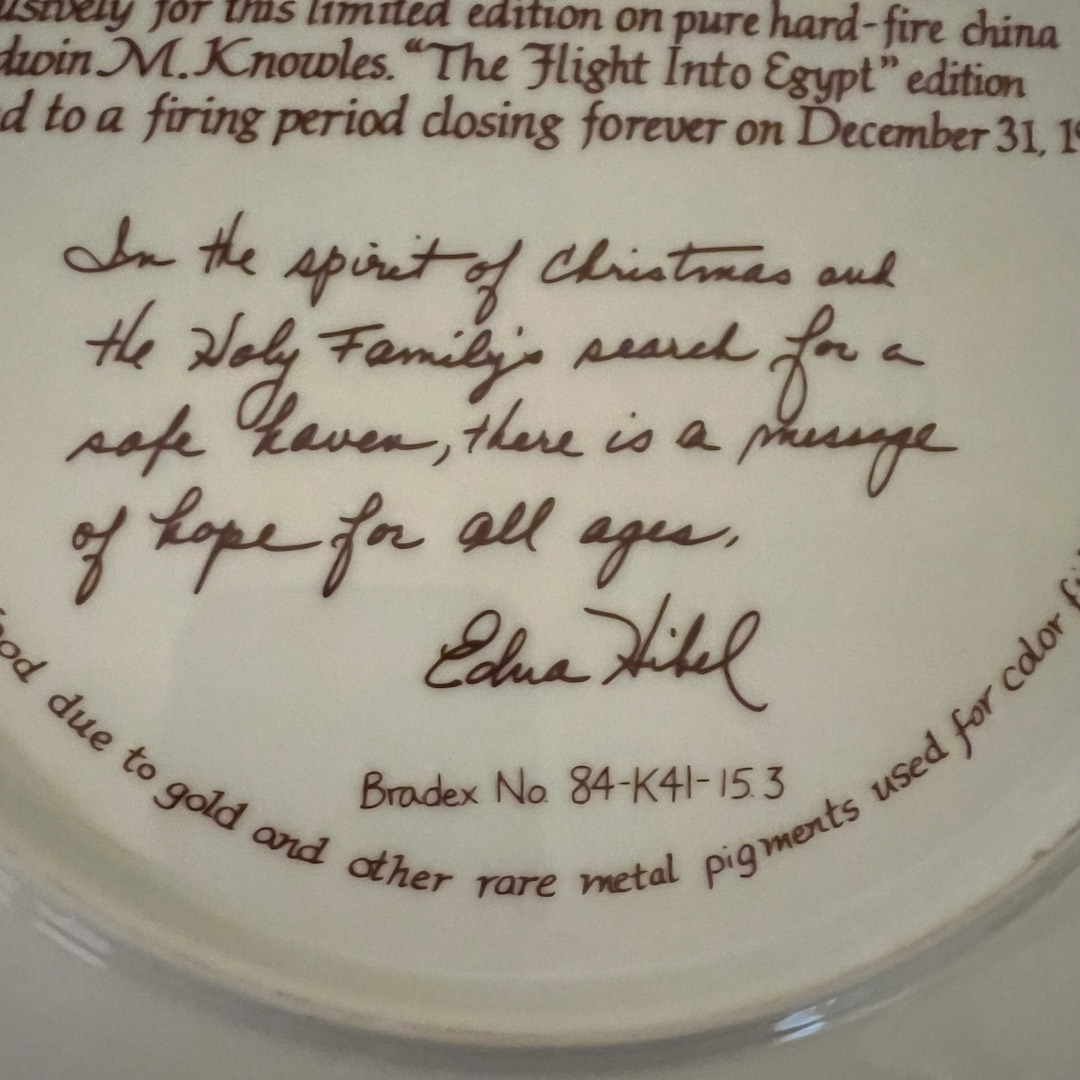 for this limited edition on pure hard-fire china
M. Knowles. “The Flight Into Egypt” edition
to a firing period closing forever on December 31,
In the spirit of Christmas and
the Holy Family's search for a
safe haven, there is a message
of hope for all ages,
Edna Hibel
Bradex No. 84-K41-15.3
due to gold and other rare metal pigments used for color